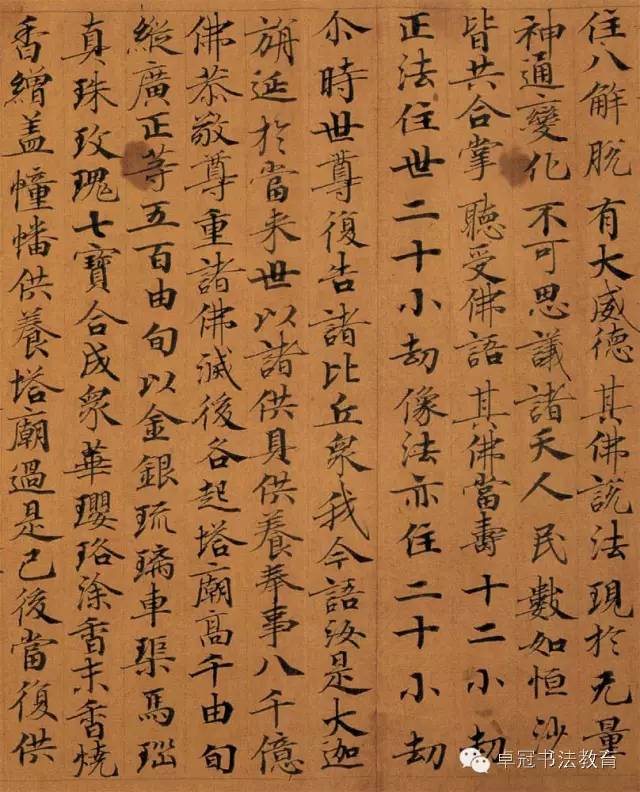 住八解脫 有大威德 其佛說法 現於无量
神通變化 不可思議 諸天人民 數如恒沙
皆共合掌 聽受佛語 其佛當壽 十二小劫
正法住世 二十小劫 像法亦住 二十小劫
尒時世尊復告諸比丘衆我今語汝是大迦
旃延於當来世以諸供具供養奉事八千億
佛恭敬尊重諸佛滅後各起塔廟高千由旬
縱廣正等五百由旬以金銀琉璃車璩馬瑙
真珠玫瑰七寶合成衆華瓔珞涂香末香燒
香繒盖幢幡供養塔廟過是已後當復供
卓冠书法教育